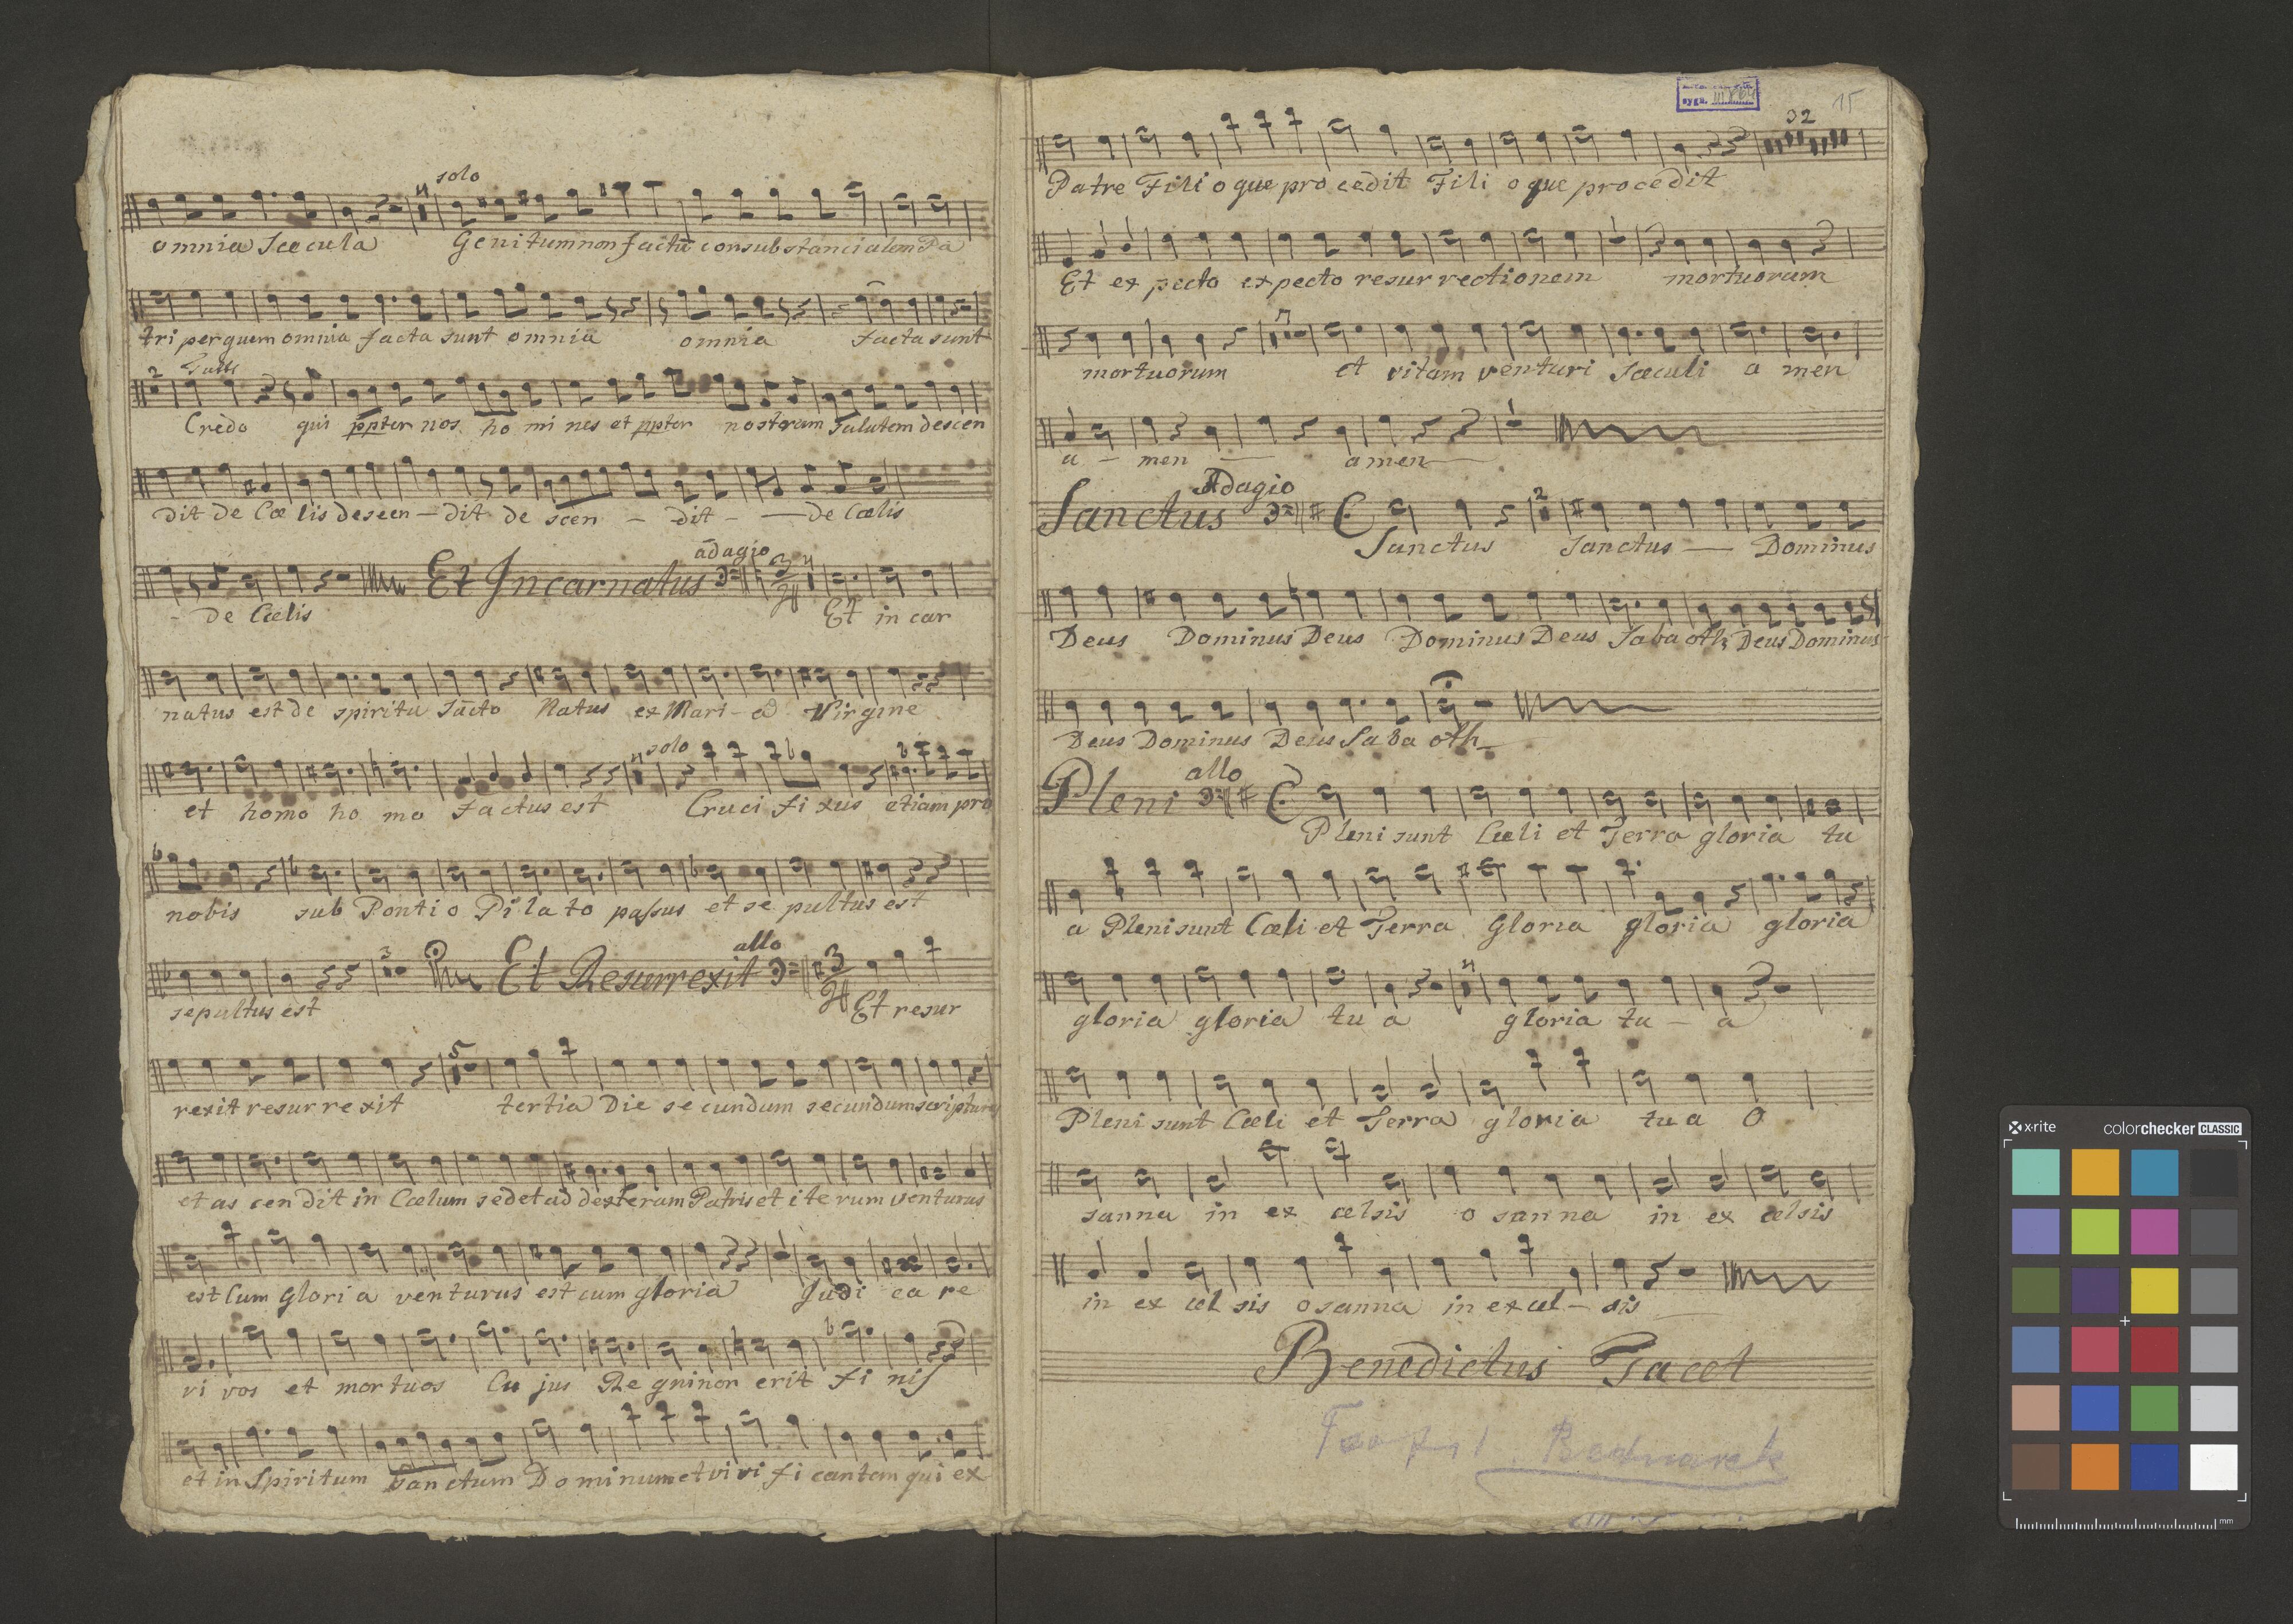 solo
omnia Sæcula Genitum non factū consubstancialem Pa
tri per quem omnia facta sunt omnia omnia facta sunt
2 Tutti
Credo qui ppter nos ho mi nes et ppter nostram Salutem descen
dit de Cœ lis descen - dit de scen - dit - - de Cœlis
adagio
Et Incarnatus
- de Cœlis Et in car
natus est de spiritu Sācto Natus ex Mari - a Virgine
solo
et homo ho mo factus est Cruci fi xus etiam pro
nobis sub Ponti o Pi la to passus et se pultus est
allo
Et Resurrexit
sepultus est Et resur
5
rexit resur re xit tertia Die se cundum secundum scripturas
et as cen dit in Cœlum sedet ad dexteram Patris et ite rum venturus
est Cum Glori a venturus est cum gloria Judi ca re
vi vos et mortuos Cu jus Re gni non erit fi nis
et in Spiritum Sanctum Dominum et vi vi fi cantem qui ex
sygn.
15
32
Patre Fili o que pro cedit Fili o que procedit
Et ex pecto expecto resur rectionem mortuorum
mortuorum et vitam venturi Sæculi a men
a - men - amen
Adagio
Sanctus
2
Sanctus Sanctus - Dominus
Deus Dominus Deus Dominus Deus Saba oth Deus Dominus
Deus Dominus Deus Saba oth
allo
Pleni
Pleni sunt Cœli et Terra gloria tu
a Pleni sunt Cœli et Terra Gloria gloria gloria
gloria gloria tu a gloria tu - a
Pleni sunt Cœli et Terra gloria tu a O
sanna in ex celsis o san na in ex celsis
in ex cel sis osanna in ex cel - sis
Benedictus Tacet
Bednarek